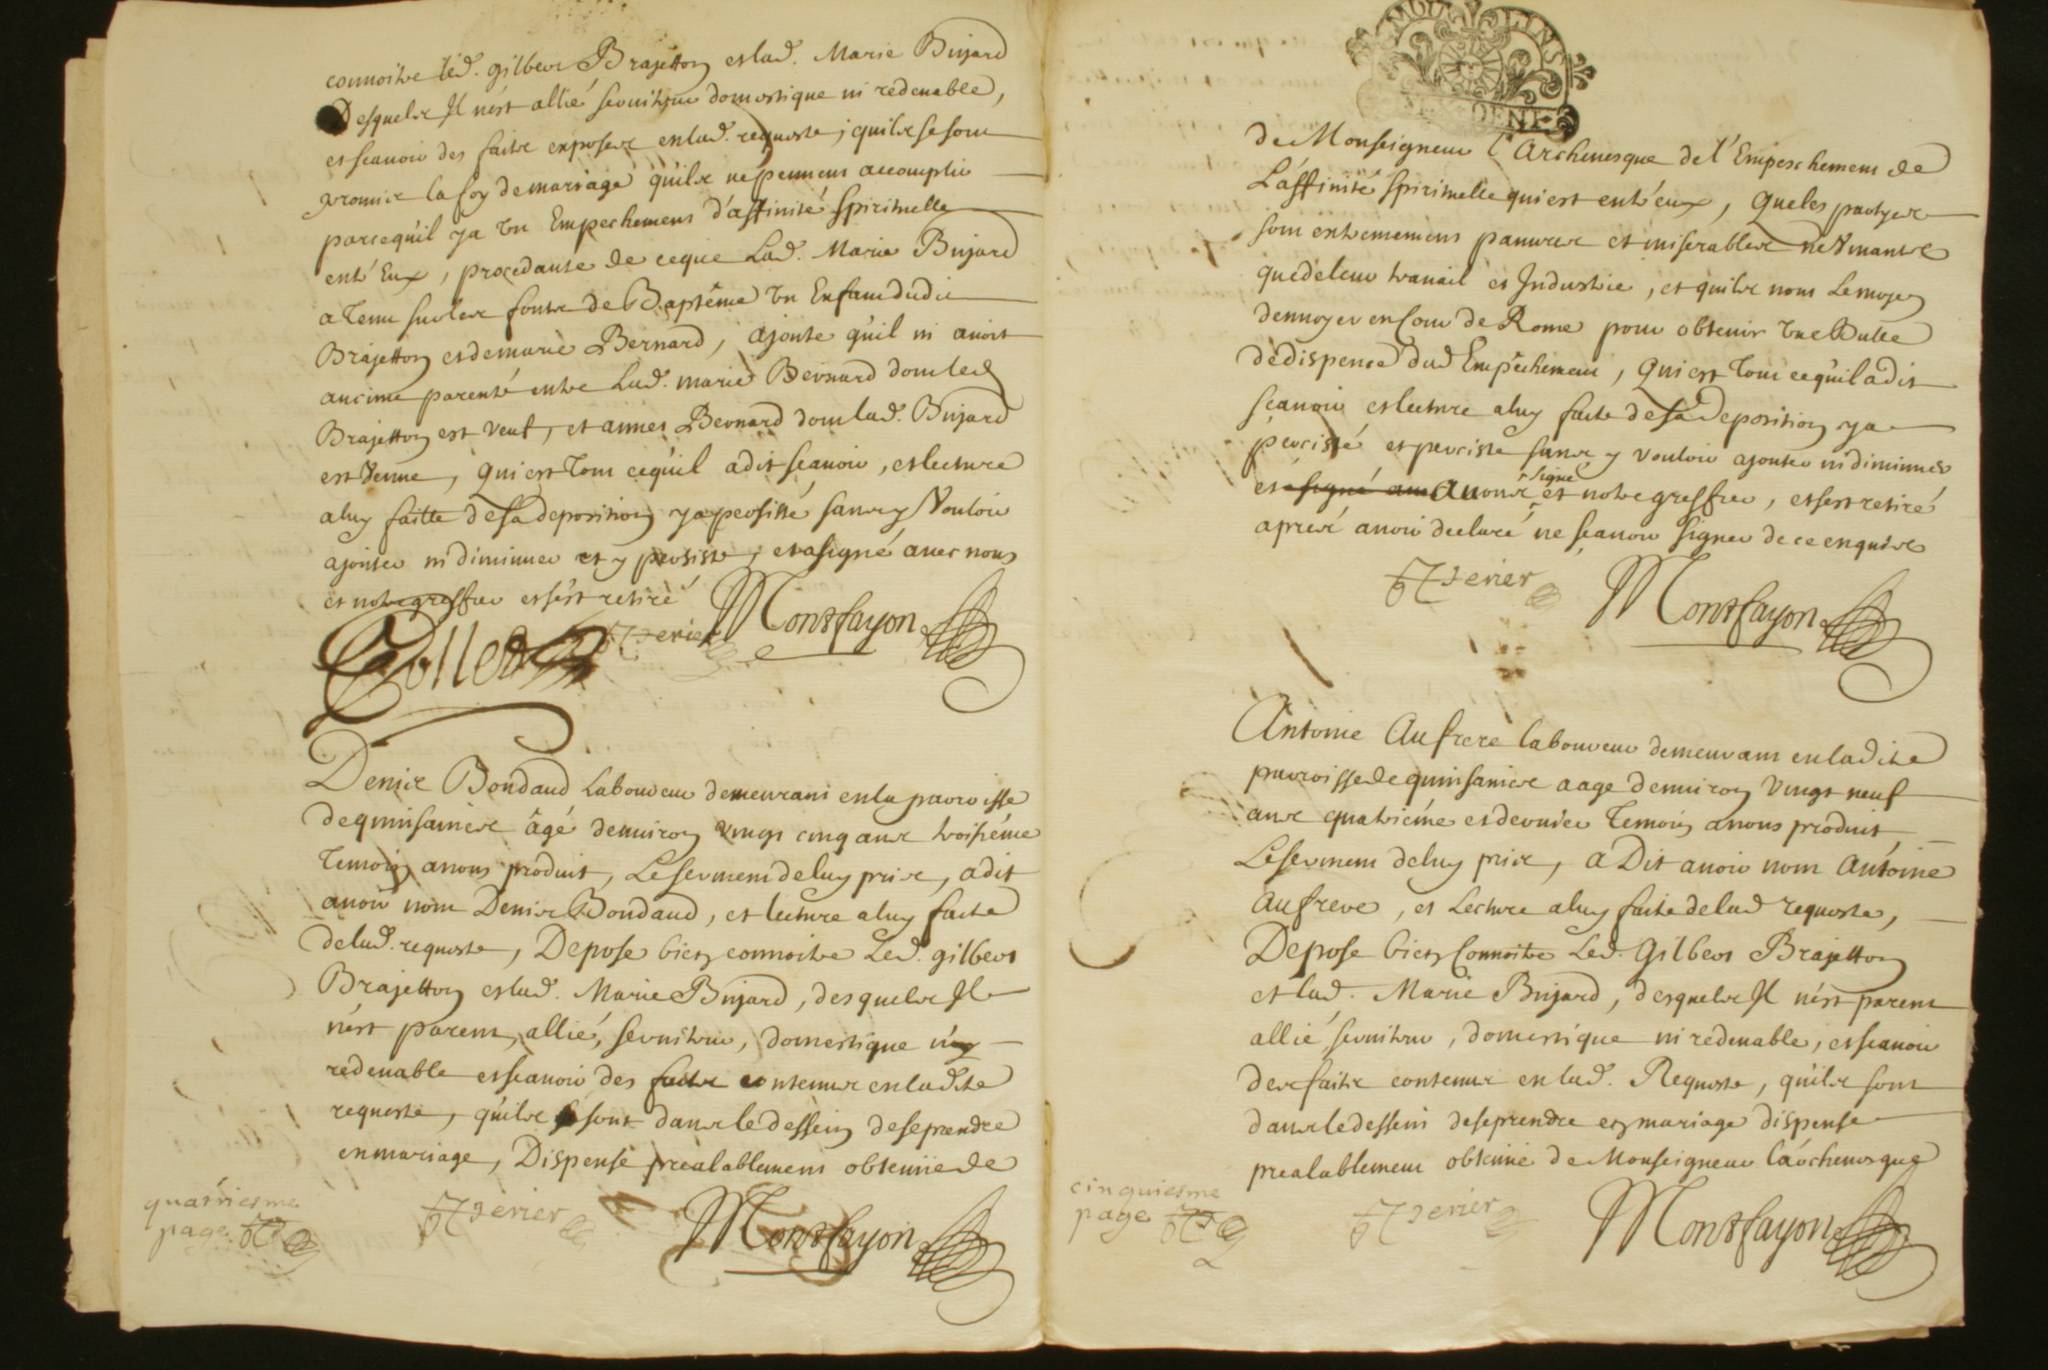 connoitre led. gilbert Brajetton et lad. Marie Bujard
Desquels Il n'est allié seruiteur domestique ni redeuable,
et scauoir des faits exposez en lad. requeste ; quils se sont
promis la foy de mariage quils ne peuuent accomplir
parcequ'il ya vn Empechement d'affinité spirituelle
ent'Eux, procedante de ceque Lad. Marie Bujard
a Tenu sur les fonts de Baptême vn Enfant dudit
Brajetton et de marie Bernard, ajoute qu'il ni auoit
aucune parenté entre Lad. marie Bernard dont led
Brajetton est veuf, et annet Bernard dont lad. Bujard
est Veuue, qui est Tout cequ'il a dit scauoir, et lecture
a luy faitte de sa deposition ya persisté, sans y Vouloir
ajouter ni diminuer et y persiste, et a signé auec nous
et notre greffier et s'est retiré
Collet
Perier
Montfayon
Denis Bondaud Laboureur demeurant en la parroisse
de quinsaines âgé denuiron vingt cinq ans troisiéme
Temoin a nous produit, Le serment de luy pris, a dit
auoir nom Denis Bondaud, et lecture a luy faite
de lad. requeste, Depose bien connoitre Led. gilbert
Brajetton et lad. Marie Bujard, desquels Il
n'est parent, allié, seruiteur, domestique ny
redeuable et scauoir des faits contenus en ladite
requeste, qu'ils se sont dans le dessein de se prendre
en mariage, Dispense prealablement obtenüe de
quatriesme
page
Perier
Montfayon
MOULINS
DENIE
de Monseigneur l'Archeuesque de l'Empeschement de
L'affinité spirituelle qui est ent'eux, que les partyes
sont extrememens pauures et miserables ne Viuants
que de leur trauail et Industrie, et quils n'ont Le moyen
d'enuoyer en Cour de Rome pour obtenir vne Bulle
de dispense dud Empêchement, qui est Tout cequ'il a dit
scauoir et lecture a luy faite de sa Deposition ya
percisté et perciste sans y vouloir ajouter ni diminuer
et a signé auec Auons signé et notre greffier, et s'est retiré
apres auoir declaré ne scauoir signer de ce enquis
Perier
Montfayon
Antoine Aufrere laboureur demeurant en ladite
parroisse de quinsaines aage denuiron vingt neuf
ans quatrieme et dernier Temoin a nous produit
Le serment de luy pris, a Dit auoir nom Antoine
Aufrere, et Lecture a luy faite de lad requeste,
Depose bien Connoitre Led. Gilbert Brajetton
et lad. Marie Bujard, desquels Il n'est parent
allié, seruiteur, domestique ni redeuable, et scauoir
des faits contenus en lad. Requeste, qu'ils sont
dans le dessein de se prendre en mariage dispense
prealablement obtenüe de Monseigneur L'archeuesque
cinquiesme
page
Perier
Montfayon